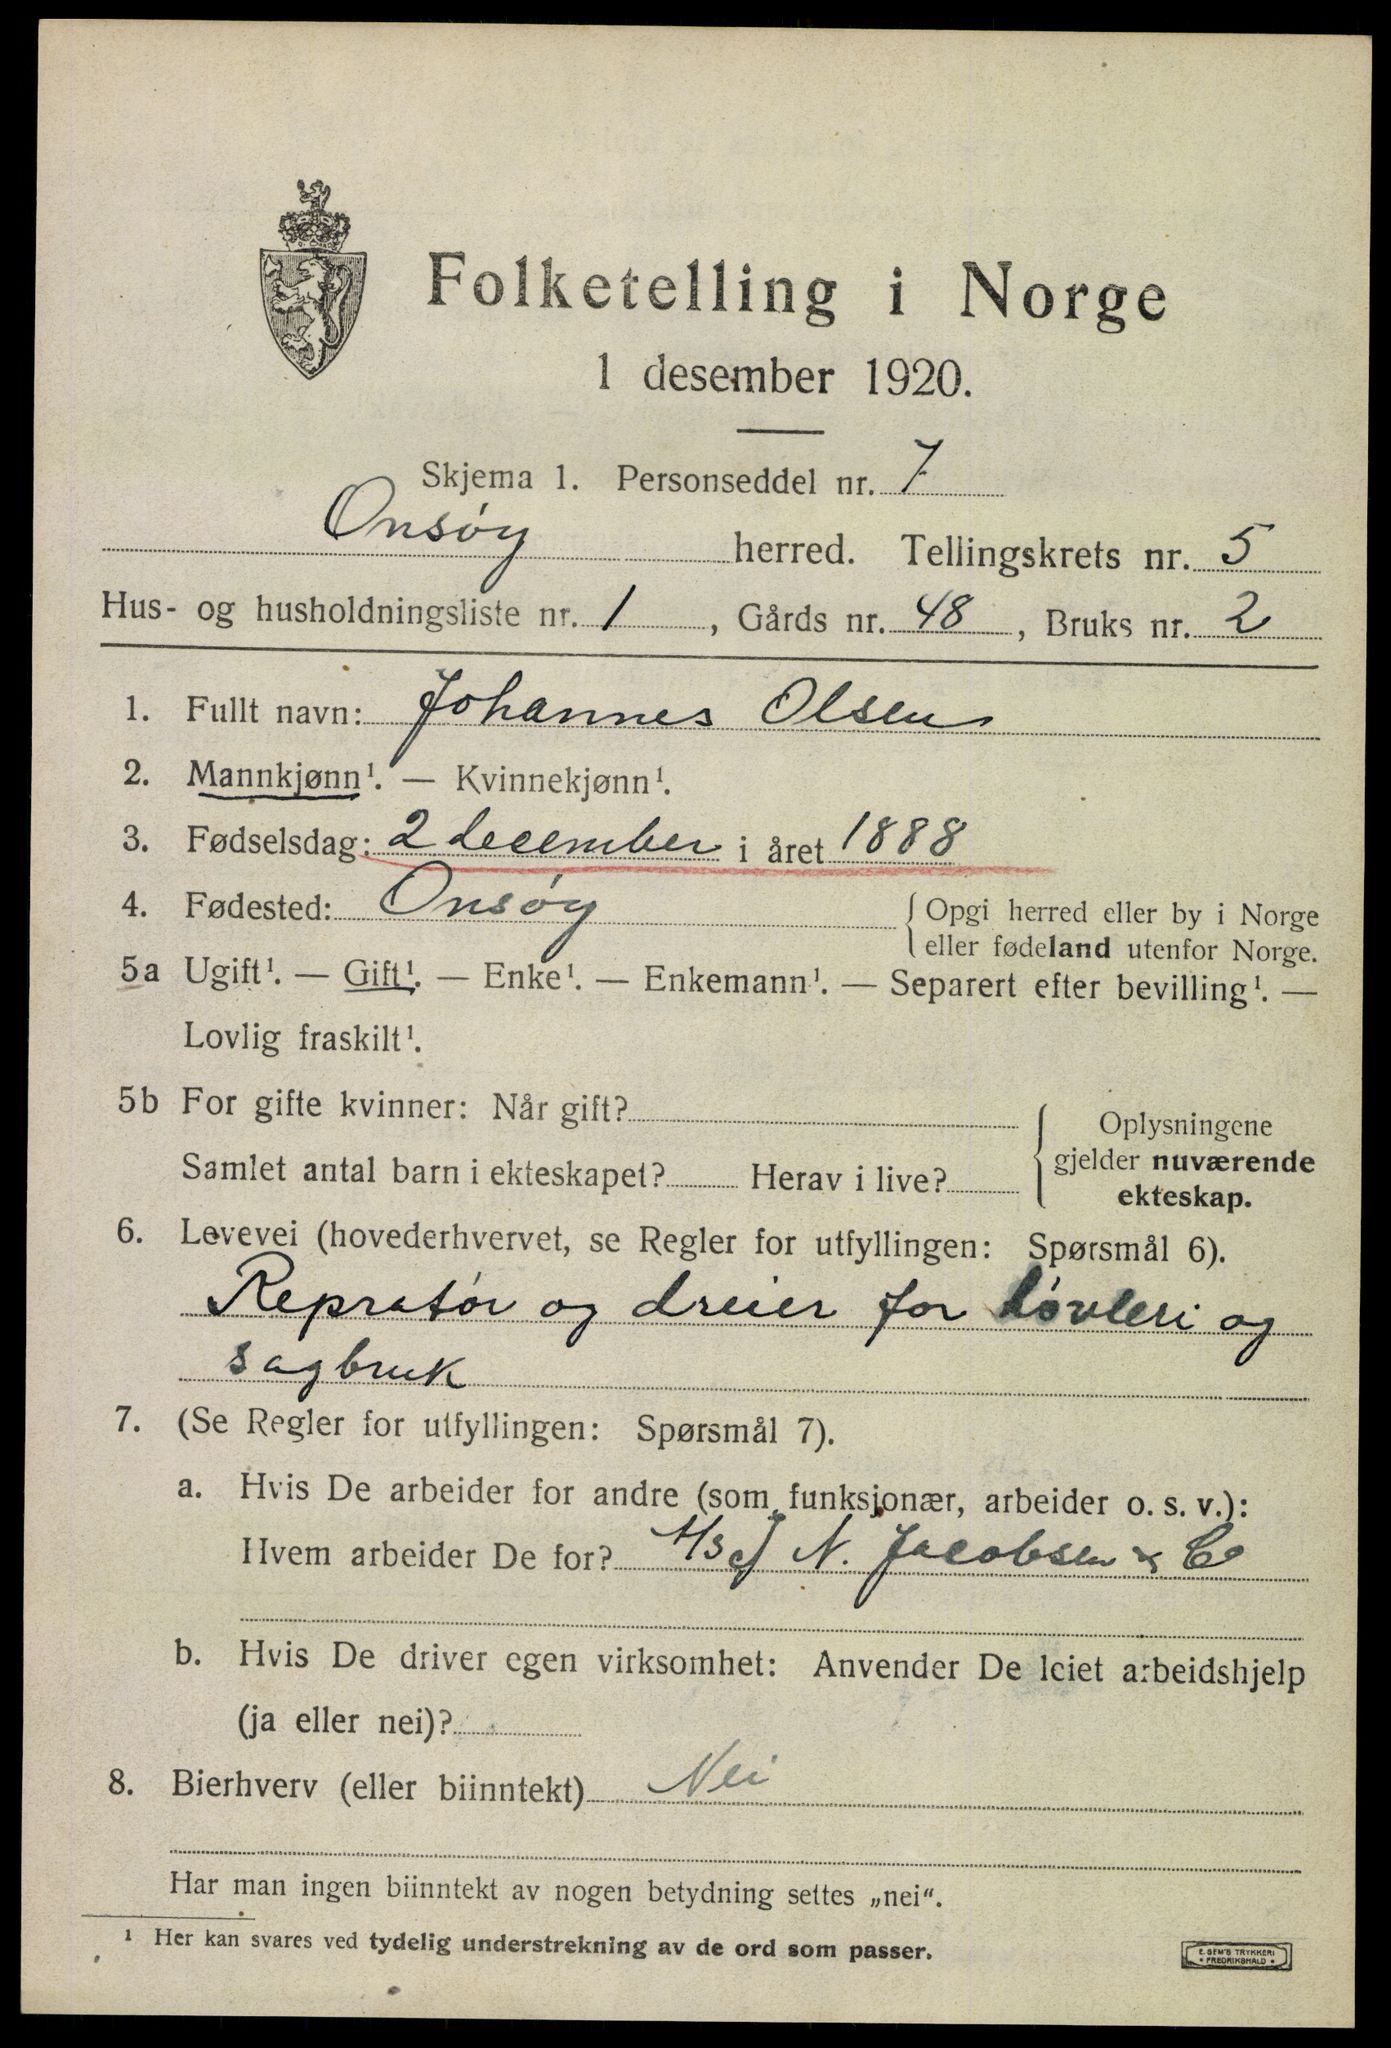 Folketelling i Norge
1 desember 1920.
Skjema 1. Personseddel nr. 7
Onsøy herred. Tellingskrets nr. 5
Hus- og husholdningsliste nr. 1, Gårds nr. 48, Bruks nr. 2
1. Fullt navn: Johannes Olsen
2. Mannkjønn¹. — Kvinnekjønn¹.
3. Fødselsdag: 2 december i året 1888
4. Fødested: Onsøy { Opgi herred eller by i Norge
eller fødeland utenfor Norge.
5a Ugift¹. — Gift¹. — Enke¹. — Enkemann¹. — Separert efter bevilling¹. —
Lovlig fraskilt¹.
5b For gifte kvinner: Når gift?
Samlet antal barn i ekteskapet? Herav i live?
Oplysningene
gjelder nuværende
ekteskap.
6. Levevei (hovederhvervet, se Regler for utfyllingen: Spørsmål 6).
Repratør og dreier for høvleri og
sagbruk
7. (Se Regler for utfyllingen: Spørsmål 7).
a. Hvis De arbeider for andre (som funksjonær, arbeider o. s. v.):
Hvem arbeider De for? N. Jacobsen & Co
b. Hvis De driver egen virksomhet: Anvender De leiet arbeidshjelp
(ja eller nei)?
8. Bierhverv (eller biinntekt) Nei
Har man ingen biinntekt av nogen betydning settes „nei“.
¹ Her kan svares ved tydelig understrekning av de ord som passer.
E. SEM'S TRYKKERI
FREDRIKSHALD